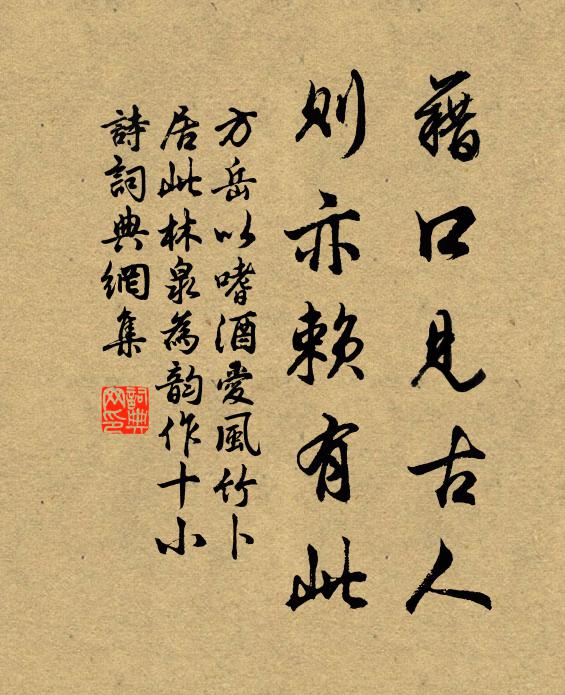 藉口見古人
則亦賴有此
方岳以嗜酒愛風竹卜
居此林泉為韵作十小
詩詞典網集
詞典網印